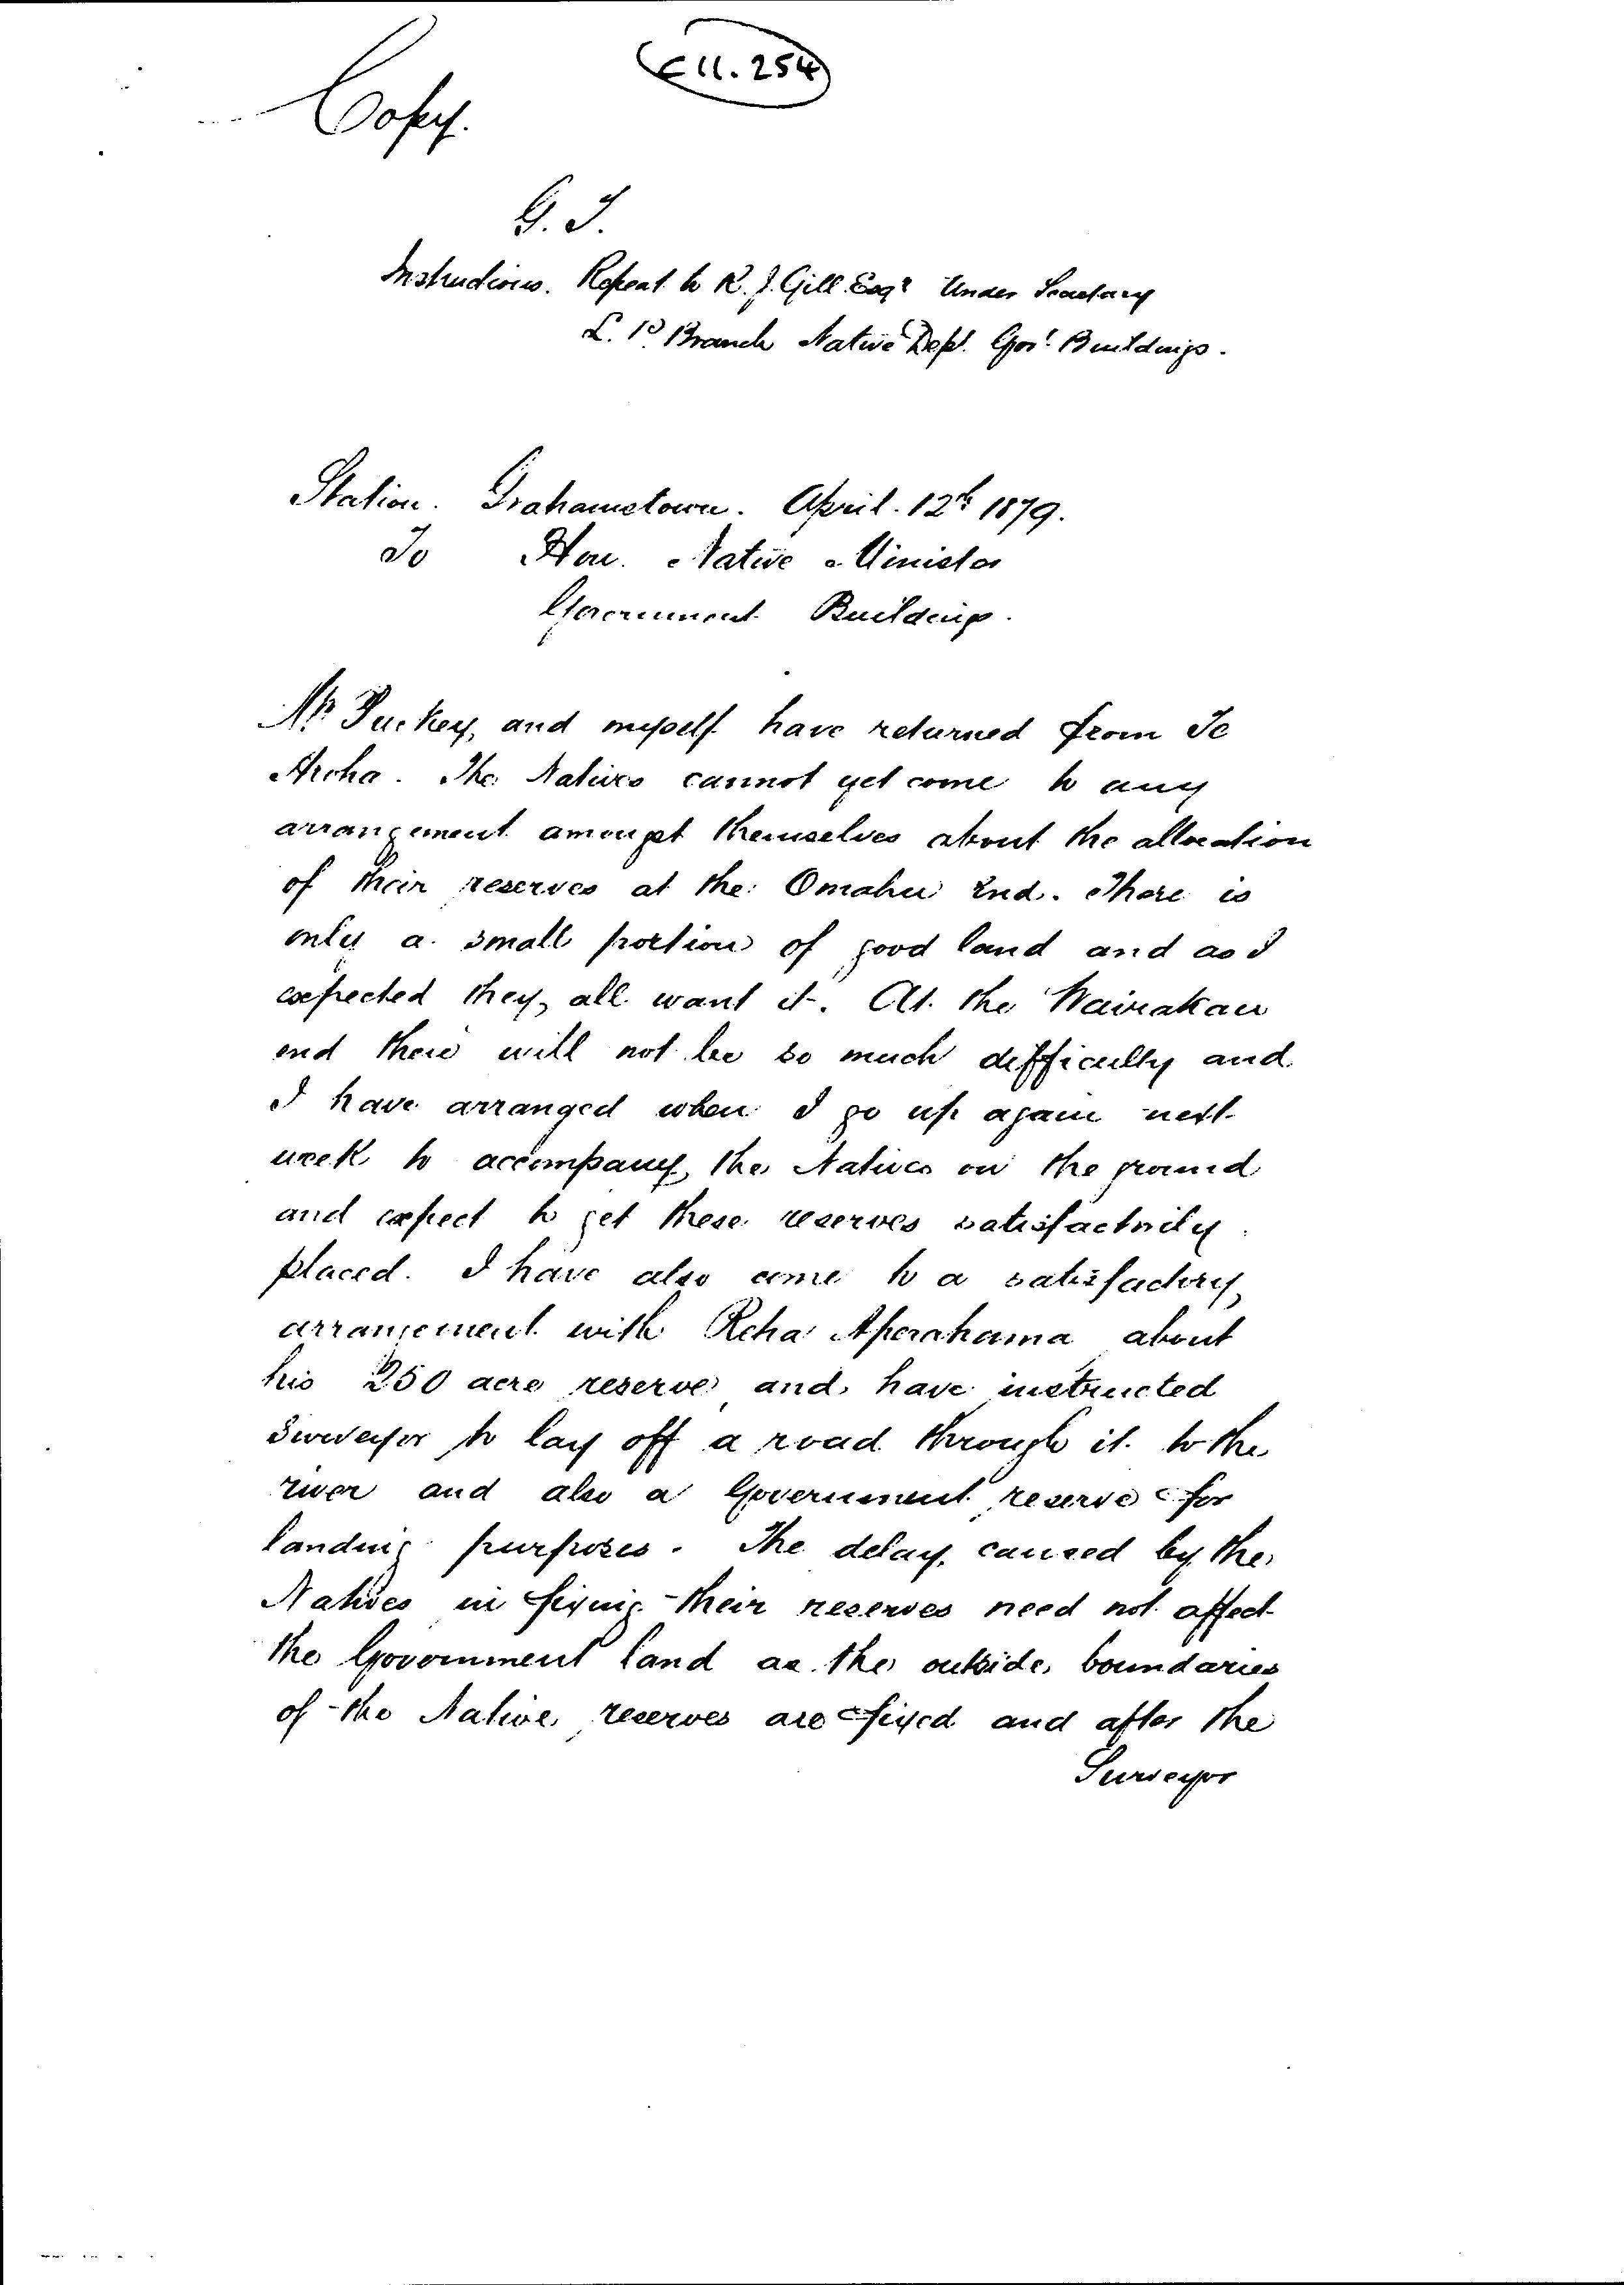 E11.254
Copy.
G. T.
Instructions. Repeat to R. J. Gill Esqr Under Secretary
L. P. Branch Native Dept. Govt. Buildings.
Station. Grahamstown. April. 12th 1879.
To Hon. Native Minister
Government Buildings.
Mr. Puckey, and myself have returned from Te
Aroha. The Natives cannot yet come to any
arrangement amongst themselves about the allocation
of their reserves at the Omahu End. There is
only a small portion of good land and as I
expected they all want it. At the Wairakau
end there will not be so much difficulty and
I have arranged when I go up again next
week to accompany the Natives on the ground
and expect to get these reserves satisfactorily
placed. I have also come to a satisfactory
arrangement with Reha Aperahama about
his 250 acre reserve and have instructed
Surveyor to lay off a road through it to the
river and also a Government reserve for
landing purposes. The delay caused by the
Natives in fixing their reserves need not affect
the Government land as the outside boundaries
of the Native reserves are fixed and after the
Surveyor